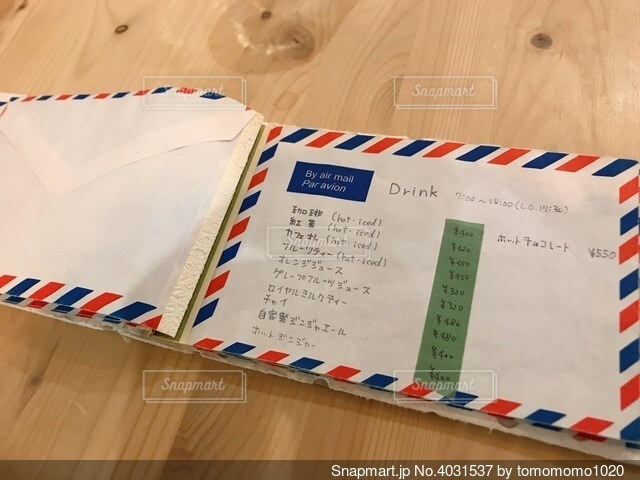 By air mail
Par avion
Drink 7:00~18:00 (L.O. 17:30)
珈琲 (hot・iced) ¥400
紅茶 (hot・iced) ¥420
カフェオレ (hot・iced) ¥450
フルーツティー (hot・iced) ¥450
オレンジジュース ¥320
グレープフルーツジュース ¥320
ロイヤルミルクティー ¥480
チャイ ¥480
自家製ジンジャエール ¥400
ホットジンジャー ¥400
ホットチョコレート ¥550
Snapmart
Snapmart
Snapmart
Snapmart
Snapmart
Snapmart.jp No.4031537 by tomomomo1020